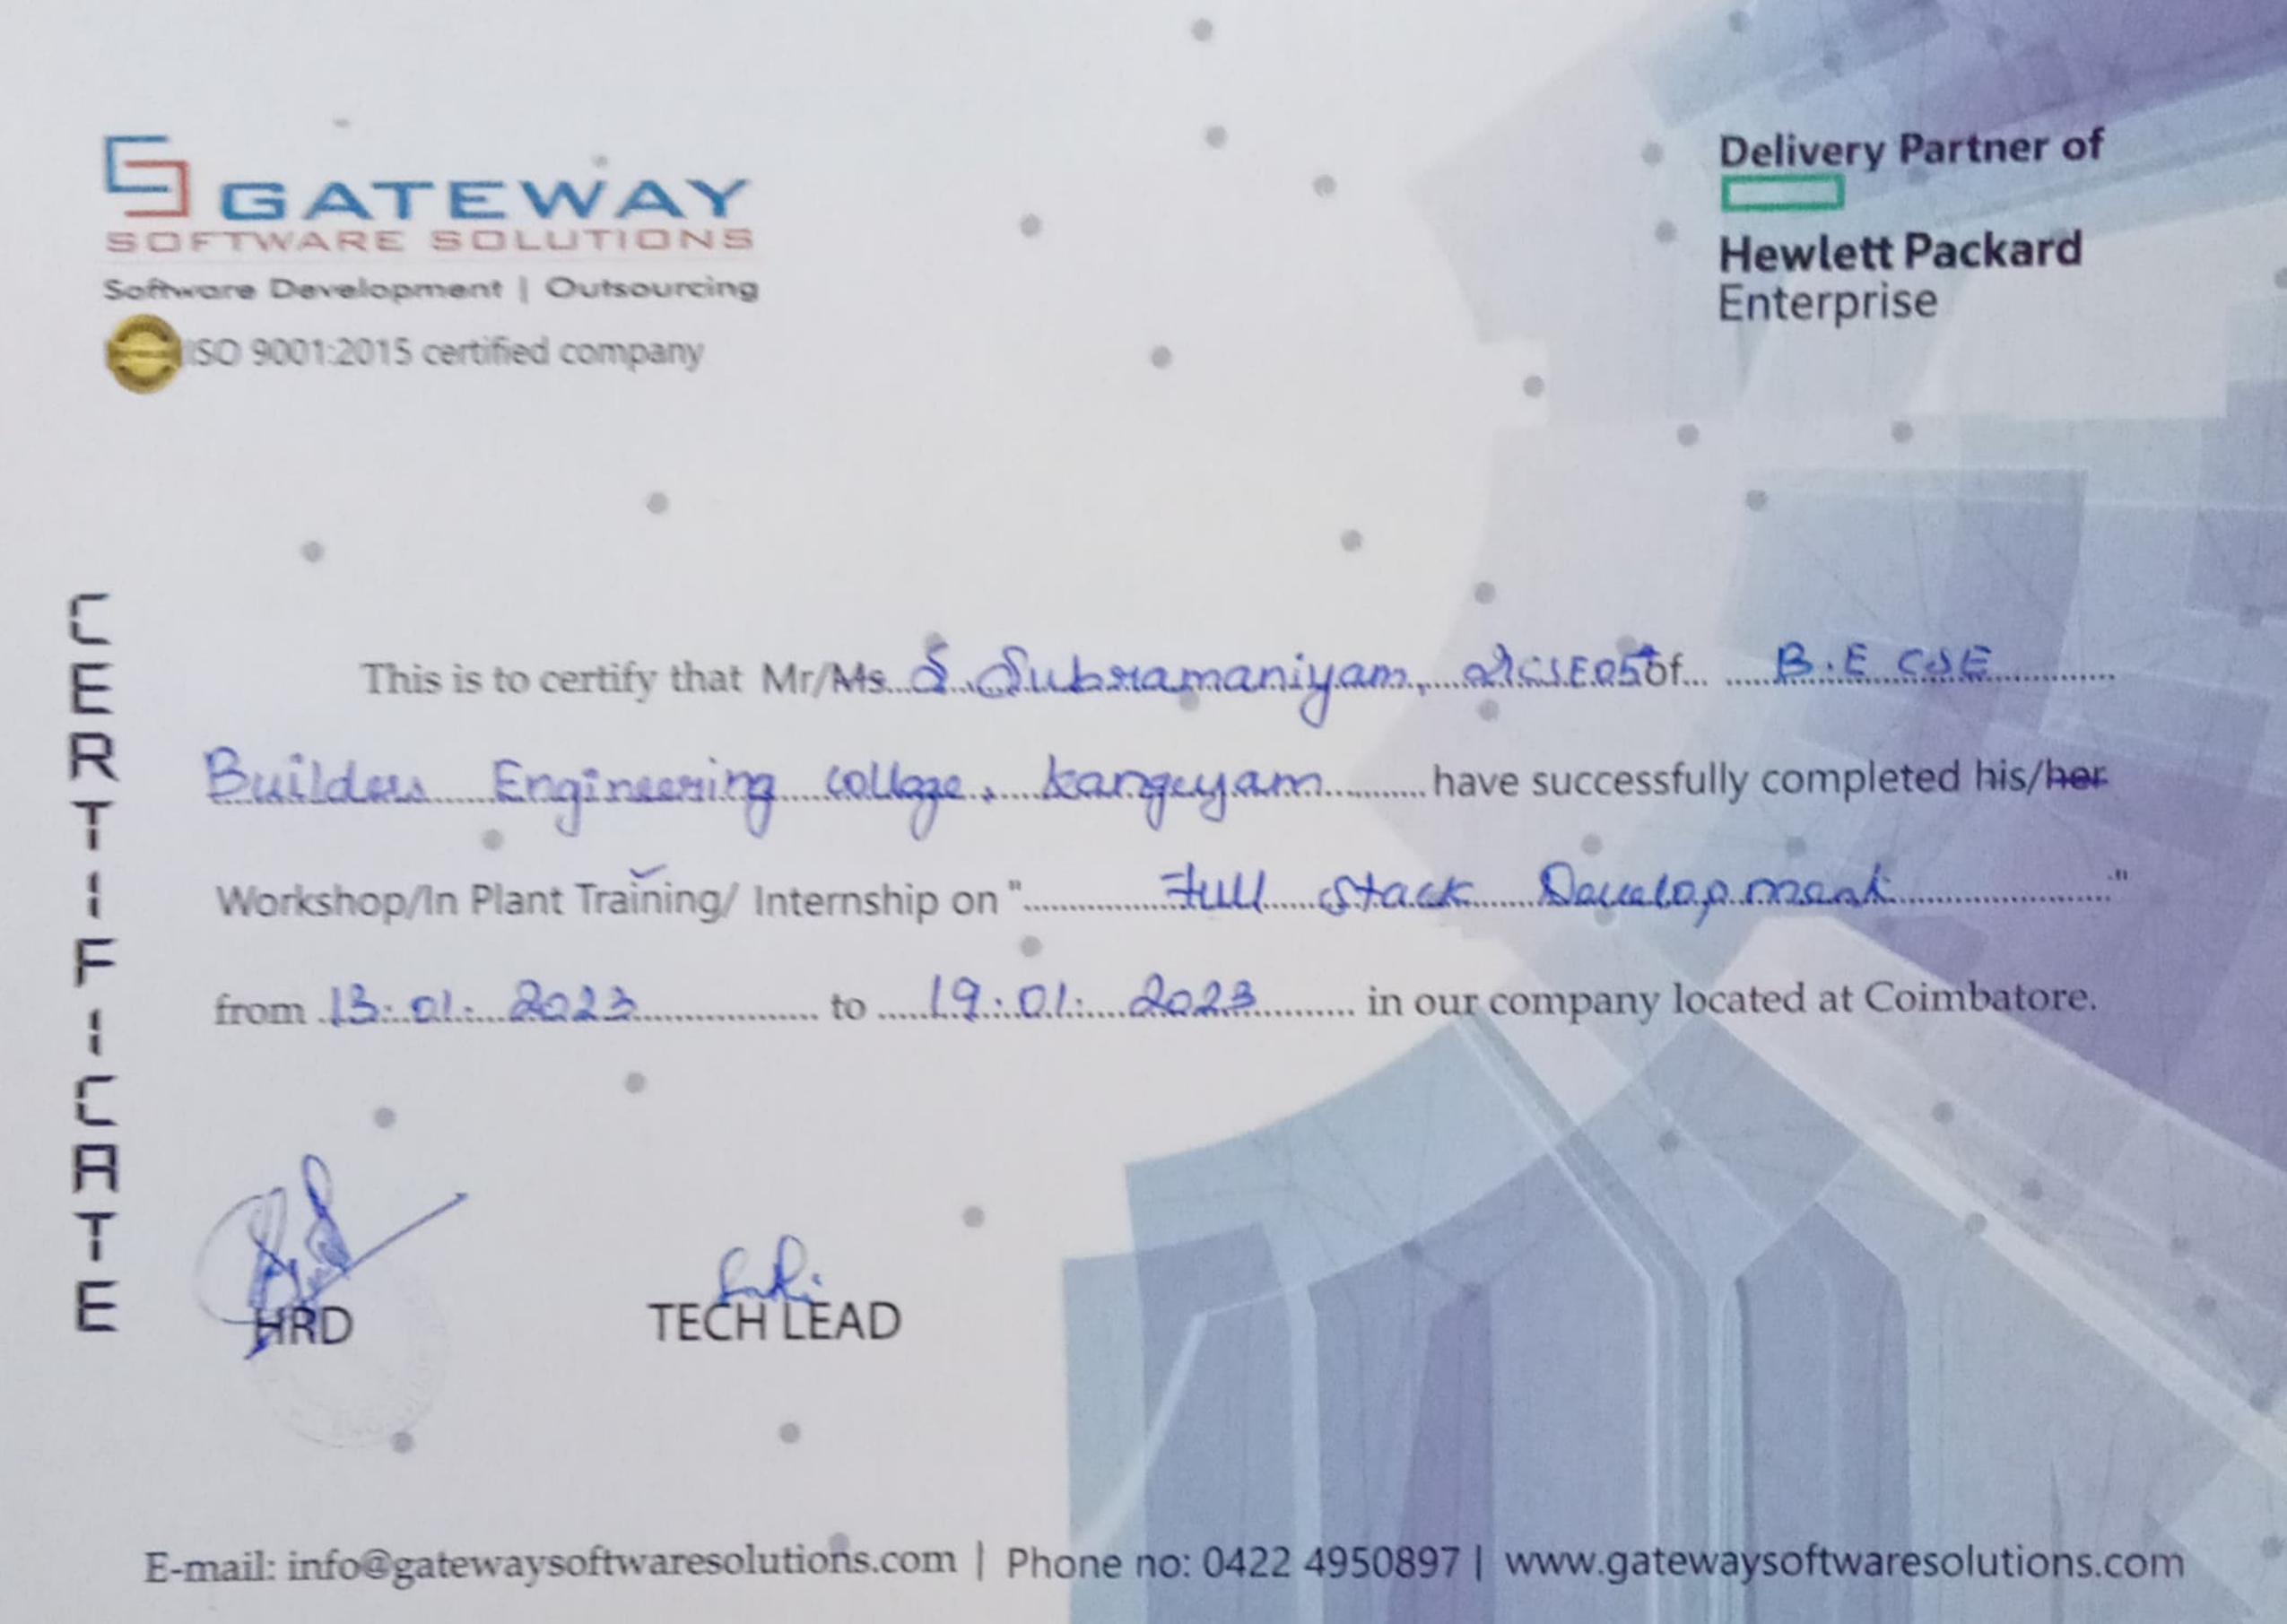 GATEWAY
SOFTWARE SOLUTIONS
Software Development | Outsourcing
ISO 9001:2015 certified company
Delivery Partner of
Hewlett Packard
Enterprise
CERTIFICATE
This is to certify that Mr/Ms S. Subramaniyam, 21CSE05 of B.E CSE
Builders Engineering college, kangeyam have successfully completed his/her
Workshop/In Plant Training/ Internship on " Full Stack Development "
from 13.01.2023 to 19.01.2023 in our company located at Coimbatore.
HRD
TECH LEAD
E-mail: info@gatewaysoftwaresolutions.com | Phone no: 0422 4950897 | www.gatewaysoftwaresolutions.com